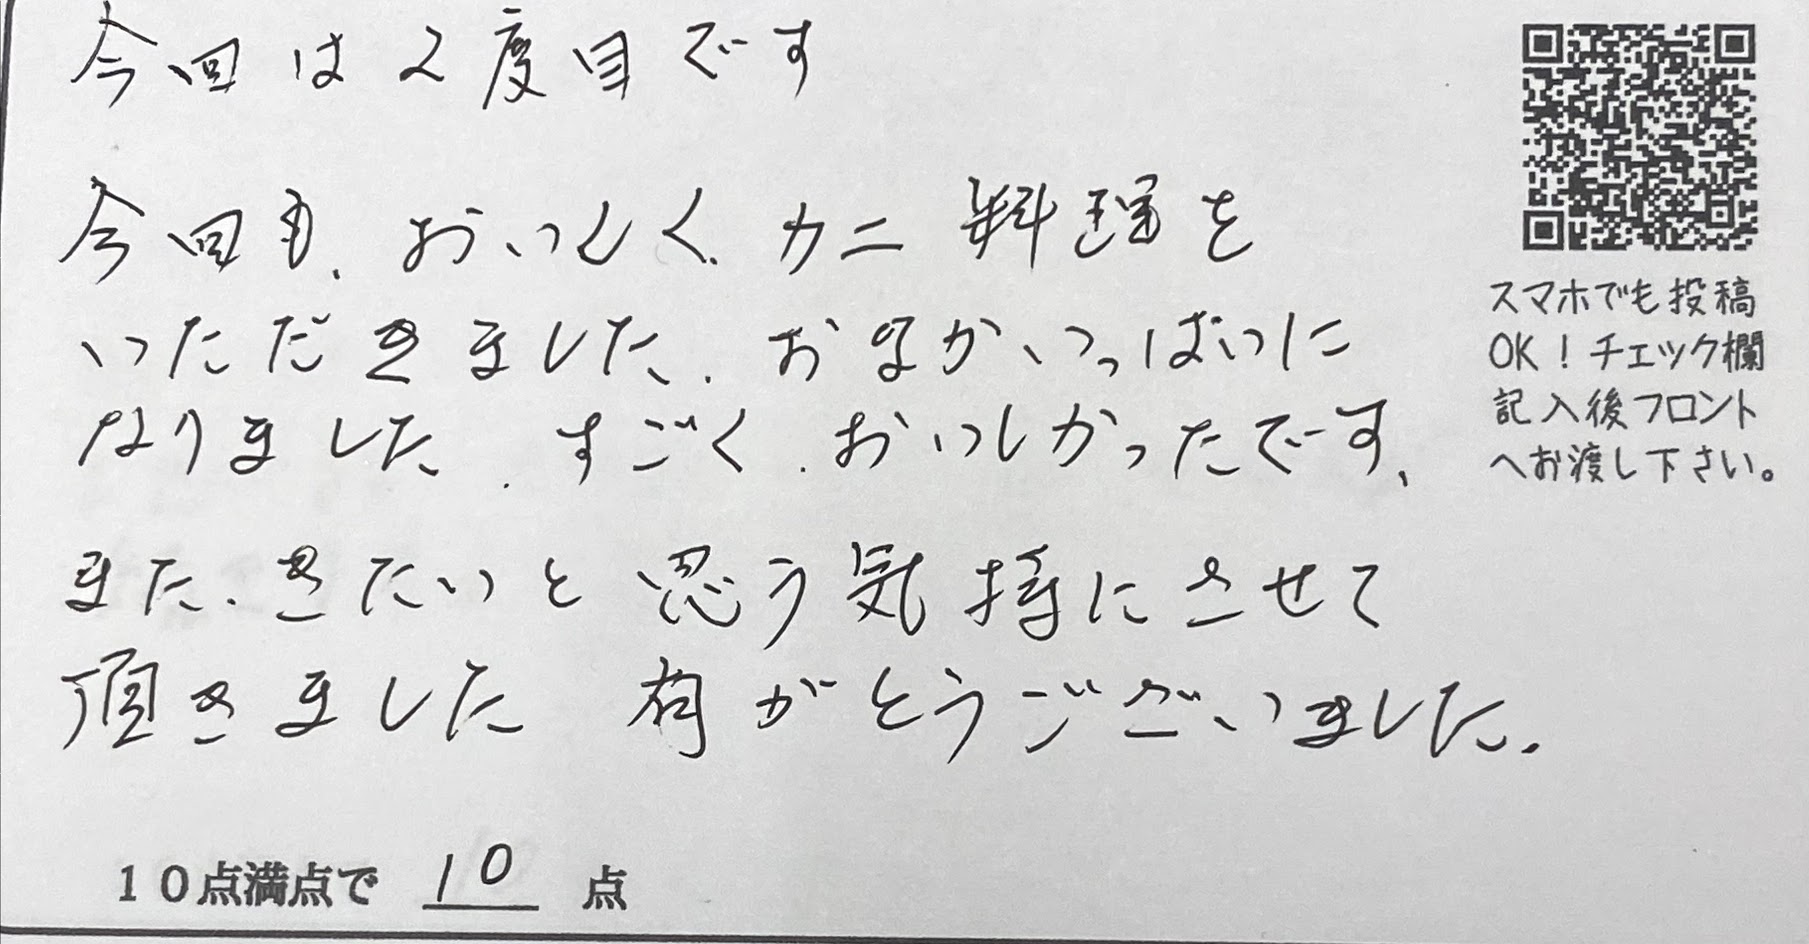 今回は2度目です
今回も、おいしく、カニ料理を
いただきました、おなかいっぱいに
なりました、すごく、おいしかったです、
また、きたいと思う気持にさせて
頂きました 有がとうございました。
10点満点で 10 点
スマホでも投稿
OK！チェック欄
記入後フロント
へお渡し下さい。